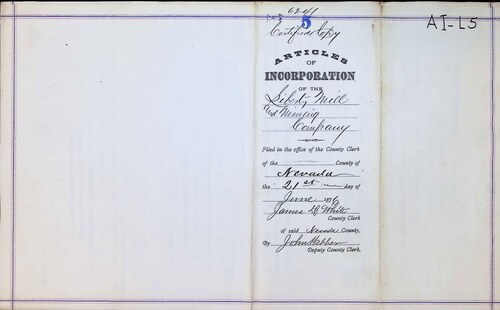 6241
5
AI-L5
Certified Copy
ARTICLES
OF
INCORPORATION
OF THE
Liberty Mill
and Mining
Company
Filed in the office of the County Clerk
of the County of
Nevada
the 21st day of
June 1876
James D. White
County Clerk
of said Nevada County.
By John Webber
Deputy County Clerk.